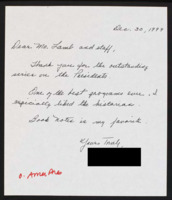 Dec. 20, 1999
Dear Mr. Lamb and staff,
Thank you for the outstanding
series on the Presidents
One of the best programs ever. I
especially liked the historians
Book Notes is my favorite
Yours Truly,